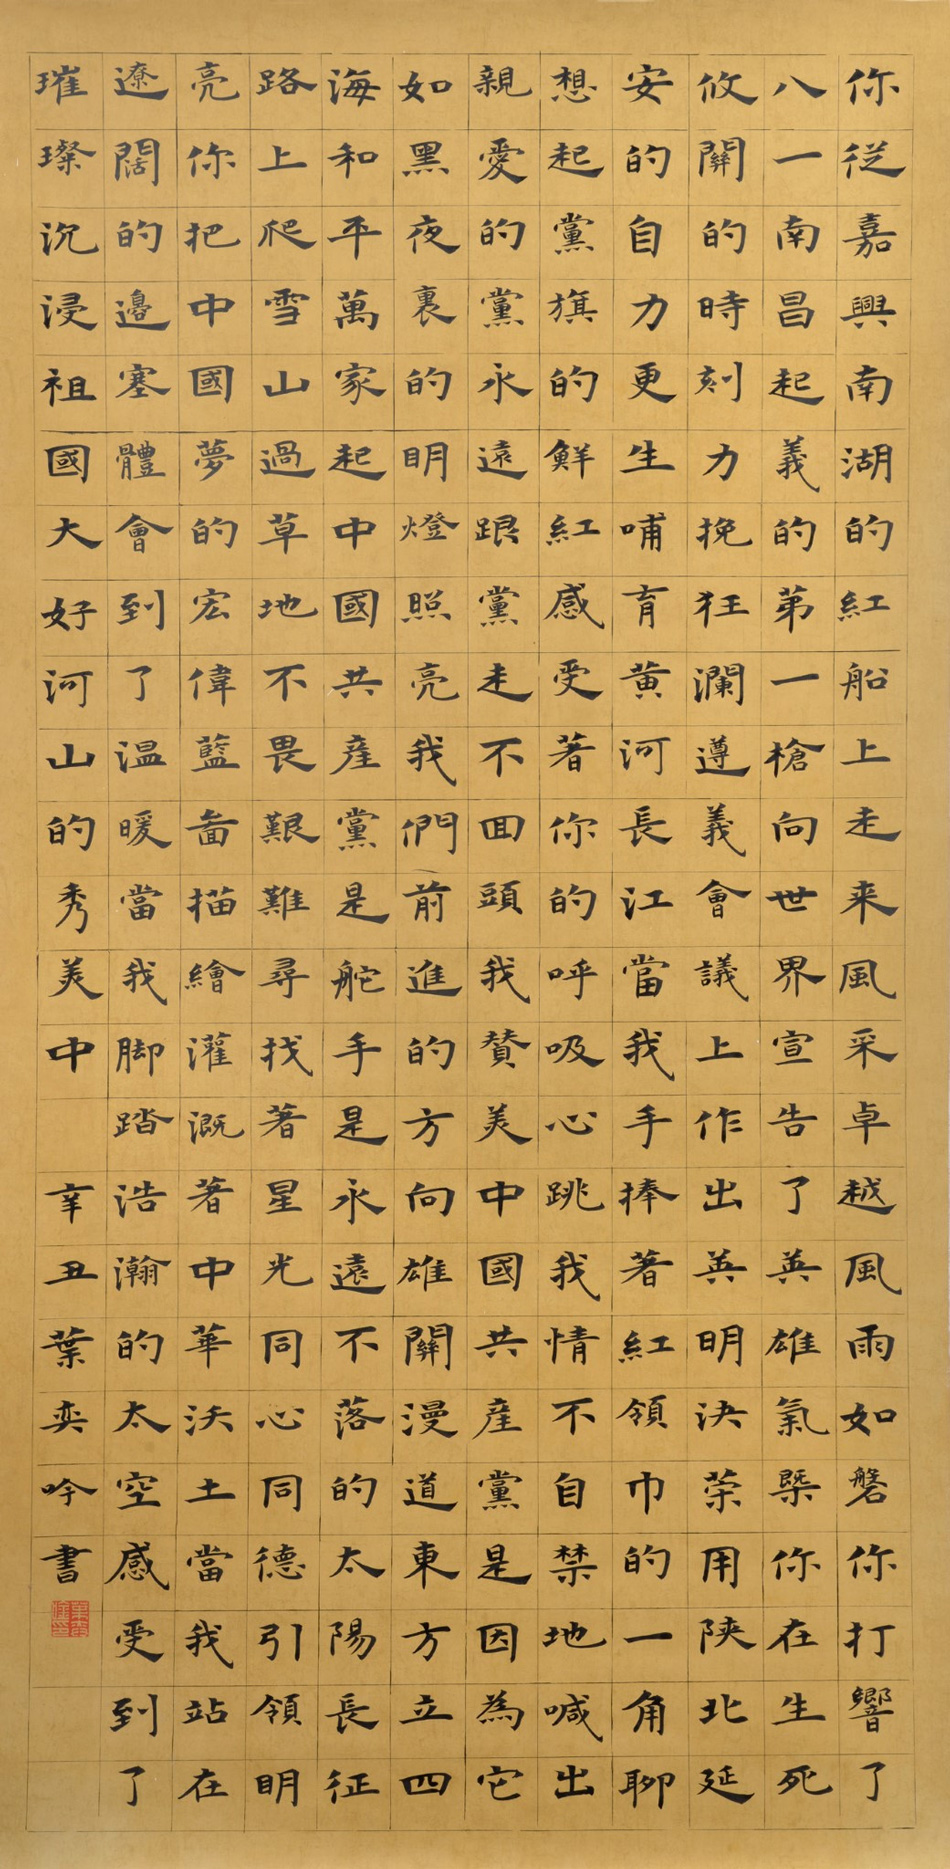 你從嘉興南湖的紅船上走来風采卓越風雨如磐你打響了
八一南昌起義的第一槍向世界宣告了英雄氣槩你在生死
攸關的時刻力挽狂瀾遵義會議上作出英明決荣用陝北延
安的自力更生哺育黄河長江當我手捧著紅領巾的一角聊
想起黨旗的鮮紅感受著你的呼吸心跳我情不自禁地喊出
親愛的黨永遠跟黨走不回頭我赞美中國共産黨是因為它
如黑夜裏的明燈照亮我們前進的方向雄關漫道東方立四
海和平萬家起中國共産黨是舵手是永遠不落的太陽長征
路上爬雪山過草地不畏艱難尋找著星光同心同德引領明
亮你把中國夢的宏偉藍畵描繪灌溉著中華沃土當我站在
遼闊的邊塞體會到了温暖當我脚踏浩瀚的太空感受到了
璀璨沉浸祖國大好河山的秀美中
辛丑葉奕吟書